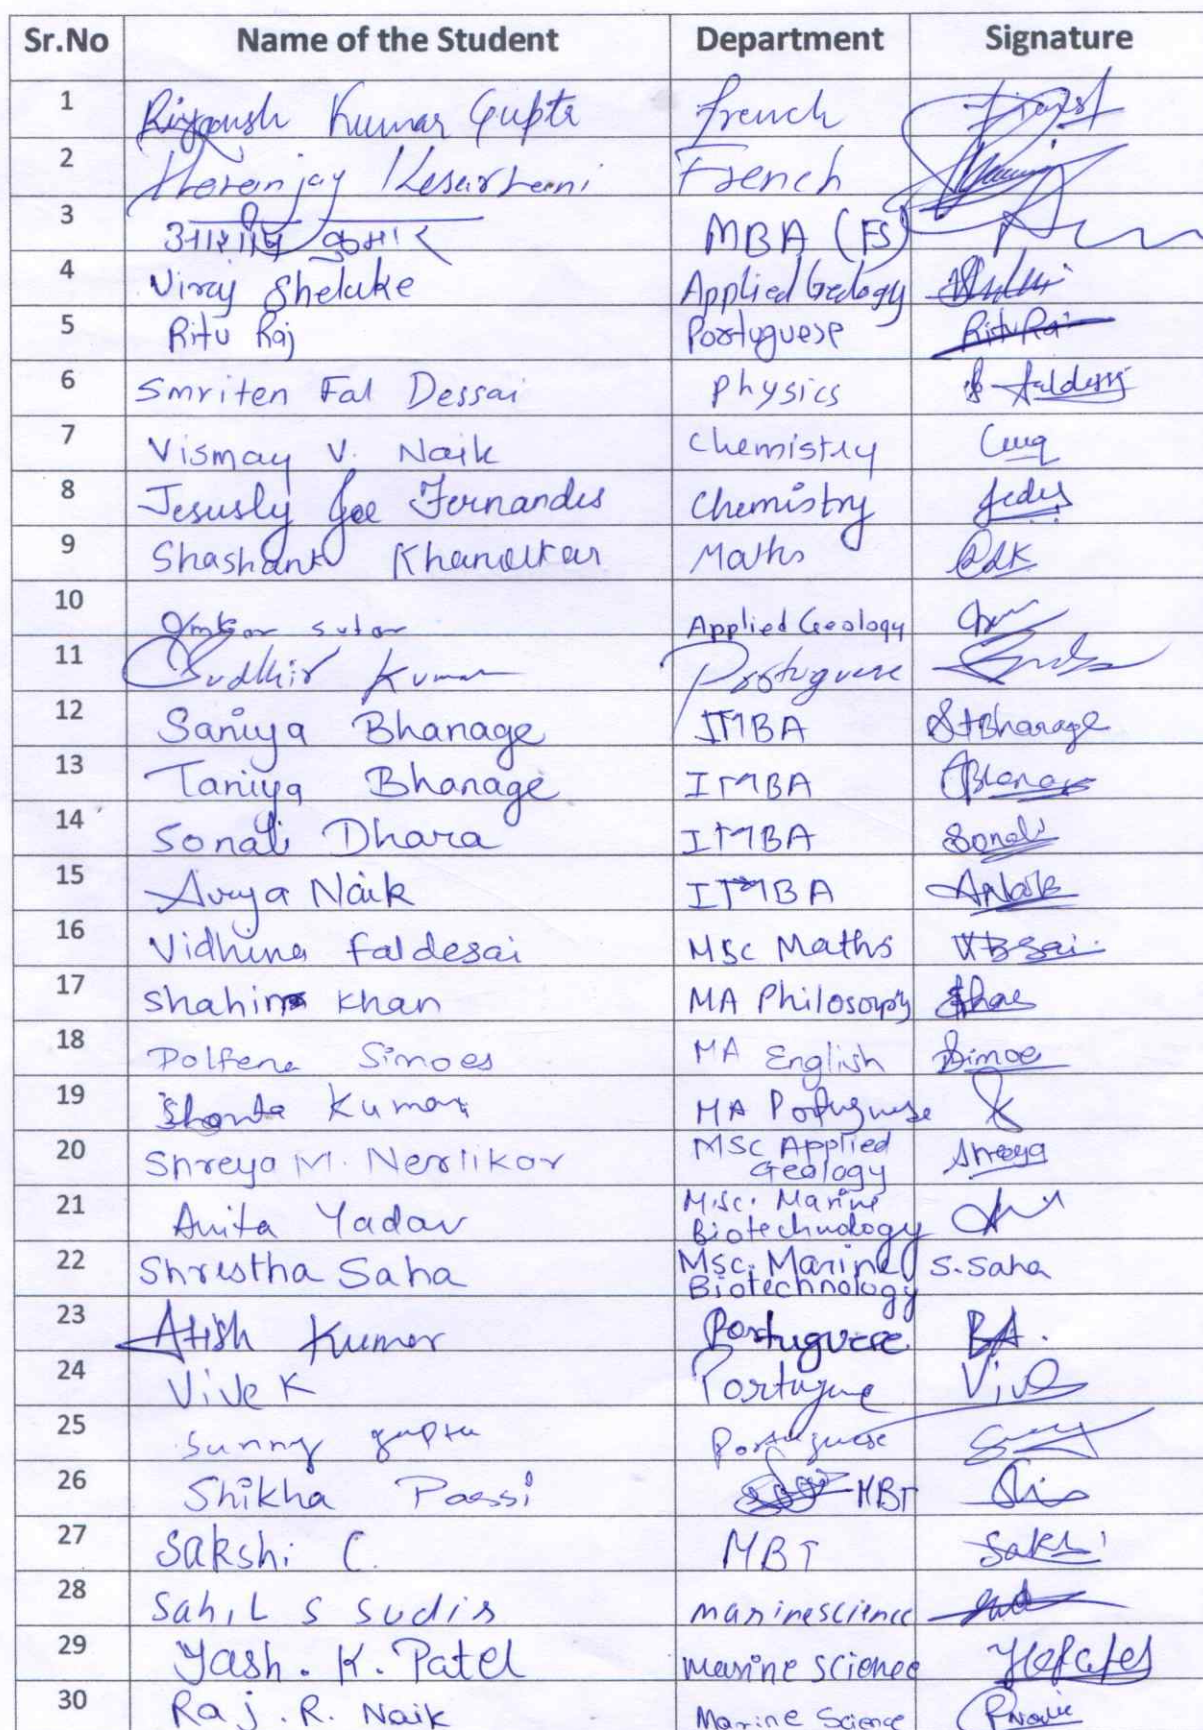 Sr.No Name of the Student Department Signature
1 Riyansh Kumar Gupta French
2 Kesarwani French
3 कुमार MBA (FS)
4 Viraj Shelake Applied Geology
5 Ritu Raj Portuguese Ritu Raj
6 Smriten Fal Dessai Physics
7 Vismay V. Naik Chemistry
8 Jesusly Joe Fernandes Chemistry
9 Shashank Khanolkar Maths
10 Omkar sutar Applied Geology
11 Sudhir Kumar Portuguese
12 Saniya Bhanage IMBA STBhanage
13 Taniya Bhanage IMBA
14 Sonali Dhara IMBA Sonali
15 Avya Naik IMBA ANaik
16 Vidhina Faldesai MSc Maths
17 Shahin Khan MA Philosophy
18 Dolfena Simoes MA English Simoe
19 Kumar MA Portuguese
20 Shreya M. Nerlikar MSC Applied
Geology Shreya
21 Anita Yadav M.Sc. Marine
Biotechnology
22 Shrestha Saha MSc. Marine
Biotechnology S. Saha
23 Atish Kumar Portuguese
24 Vivek Portugue
25 Sunny gupta Portuguese
26 Shikha Passi MBT
27 Sakshi C. MBT Sakshi
28 Sahil S Sudir marinescience
29 Yash. K. Patel marine science
30 Raj. R. Naik Marine Science